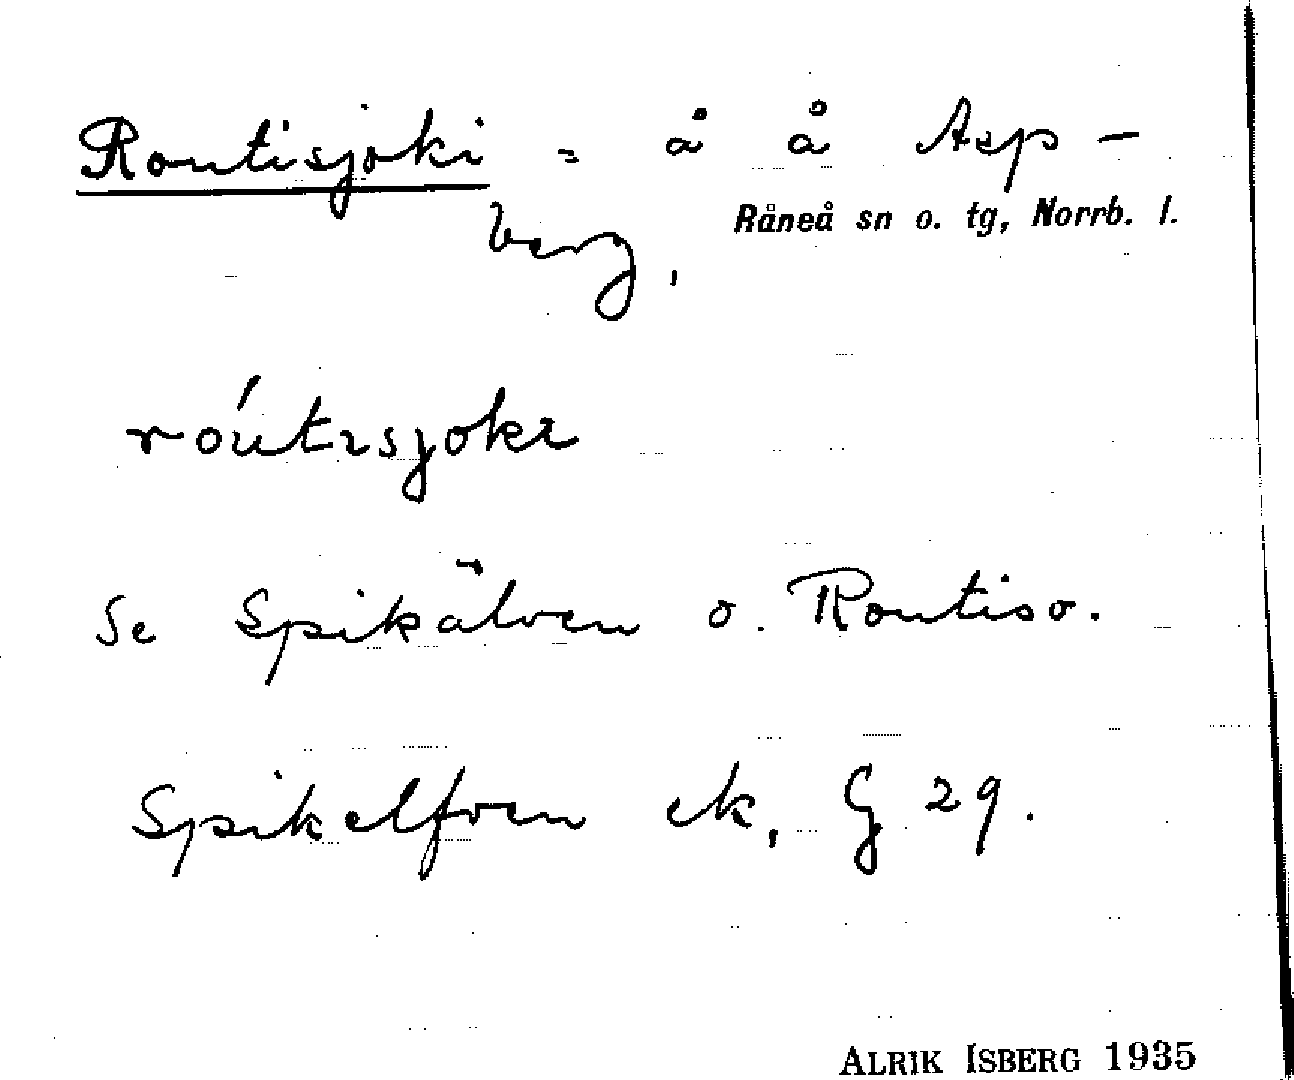 Routisjoki = å å Asp-
berg,
Råneå sn o. tg, Norrb. l.
róutısjokı
Se Spikälven o. Routisv.
Spikelfven ek, G 29.
ALRIK ISBERG 1935